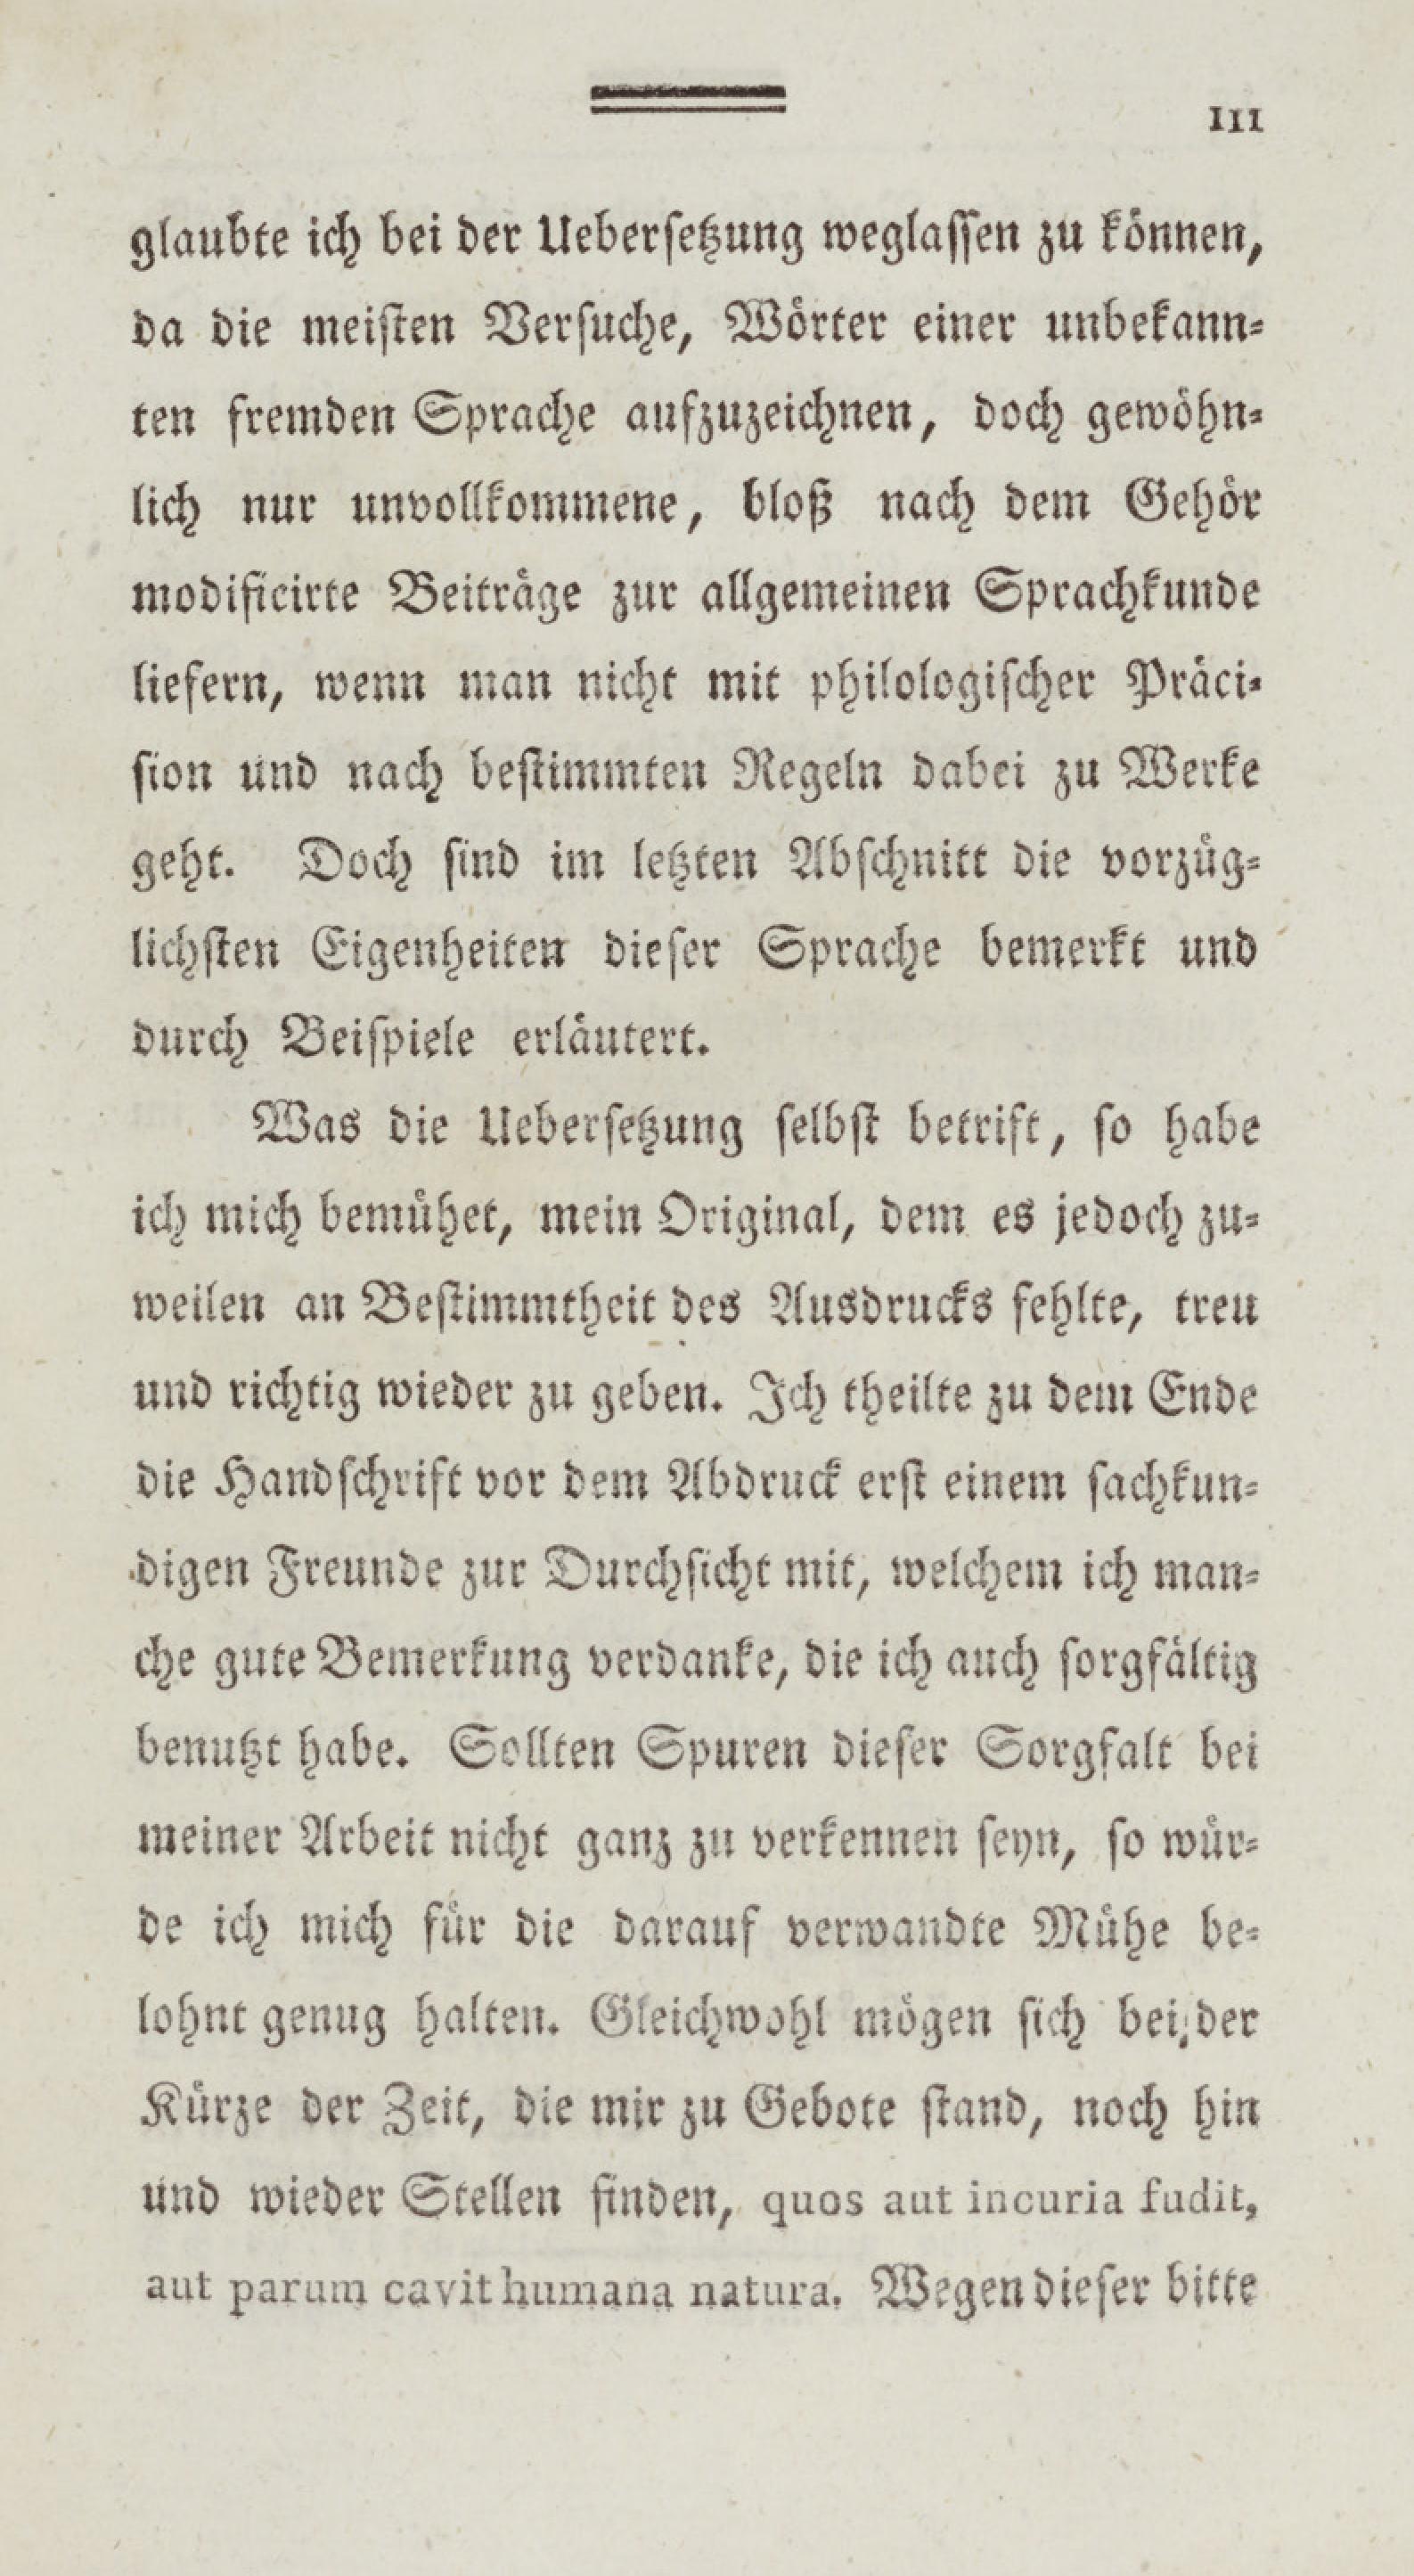 III
glaubte ich bei der Uebersetzung weglassen zu können,
da die meisten Versuche, Wörter einer unbekann-
ten fremden Sprache aufzuzeichnen, doch gewöhn-
lich nur unvollkommene, bloß nach dem Gehör
modificirte Beiträge zur allgemeinen Sprachkunde
liefern, wenn man nicht mit philologischer Präci-
sion und nach bestimmten Regeln dabei zu Werke
geht. Doch sind im letzten Abschnitt die vorzüg-
lichsten Eigenheiten dieser Sprache bemerkt und
durch Beispiele erläutert.
Was die Uebersetzung selbst betrift, so habe
ich mich bemühet, mein Original, dem es jedoch zu-
weilen an Bestimmtheit des Ausdrucks fehlte, treu
und richtig wieder zu geben. Ich theilte zu dem Ende
die Handschrift vor dem Abdruck erst einem sachkun-
digen Freunde zur Durchsicht mit, welchem ich man-
che gute Bemerkung verdanke, die ich auch sorgfältig
benutzt habe. Sollten Spuren dieser Sorgfalt bei
meiner Arbeit nicht ganz zu verkennen seyn, so wür-
de ich mich für die darauf verwandte Mühe be-
lohnt genug halten. Gleichwohl mögen sich bei der
Kürze der Zeit, die mir zu Gebote stand, noch hin
und wieder Stellen finden, quos aut incuria fudit,
aut parum cavit humana natura. Wegen dieser bitte